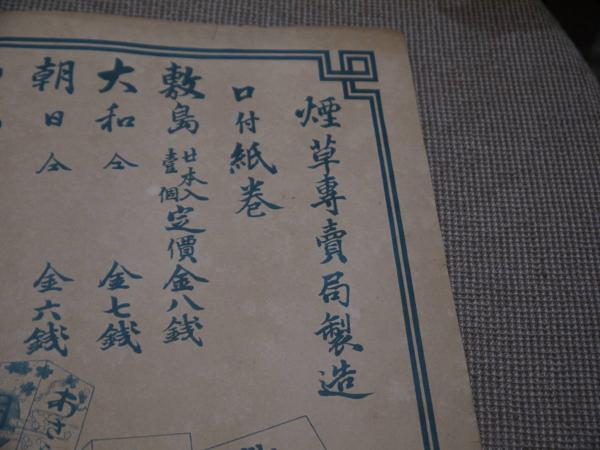 煙草專賣局製造
口付紙巻
敷島 廿本入壹個定價金八銭
大和 仝 金七銭
朝日 仝 金六銭
あさ